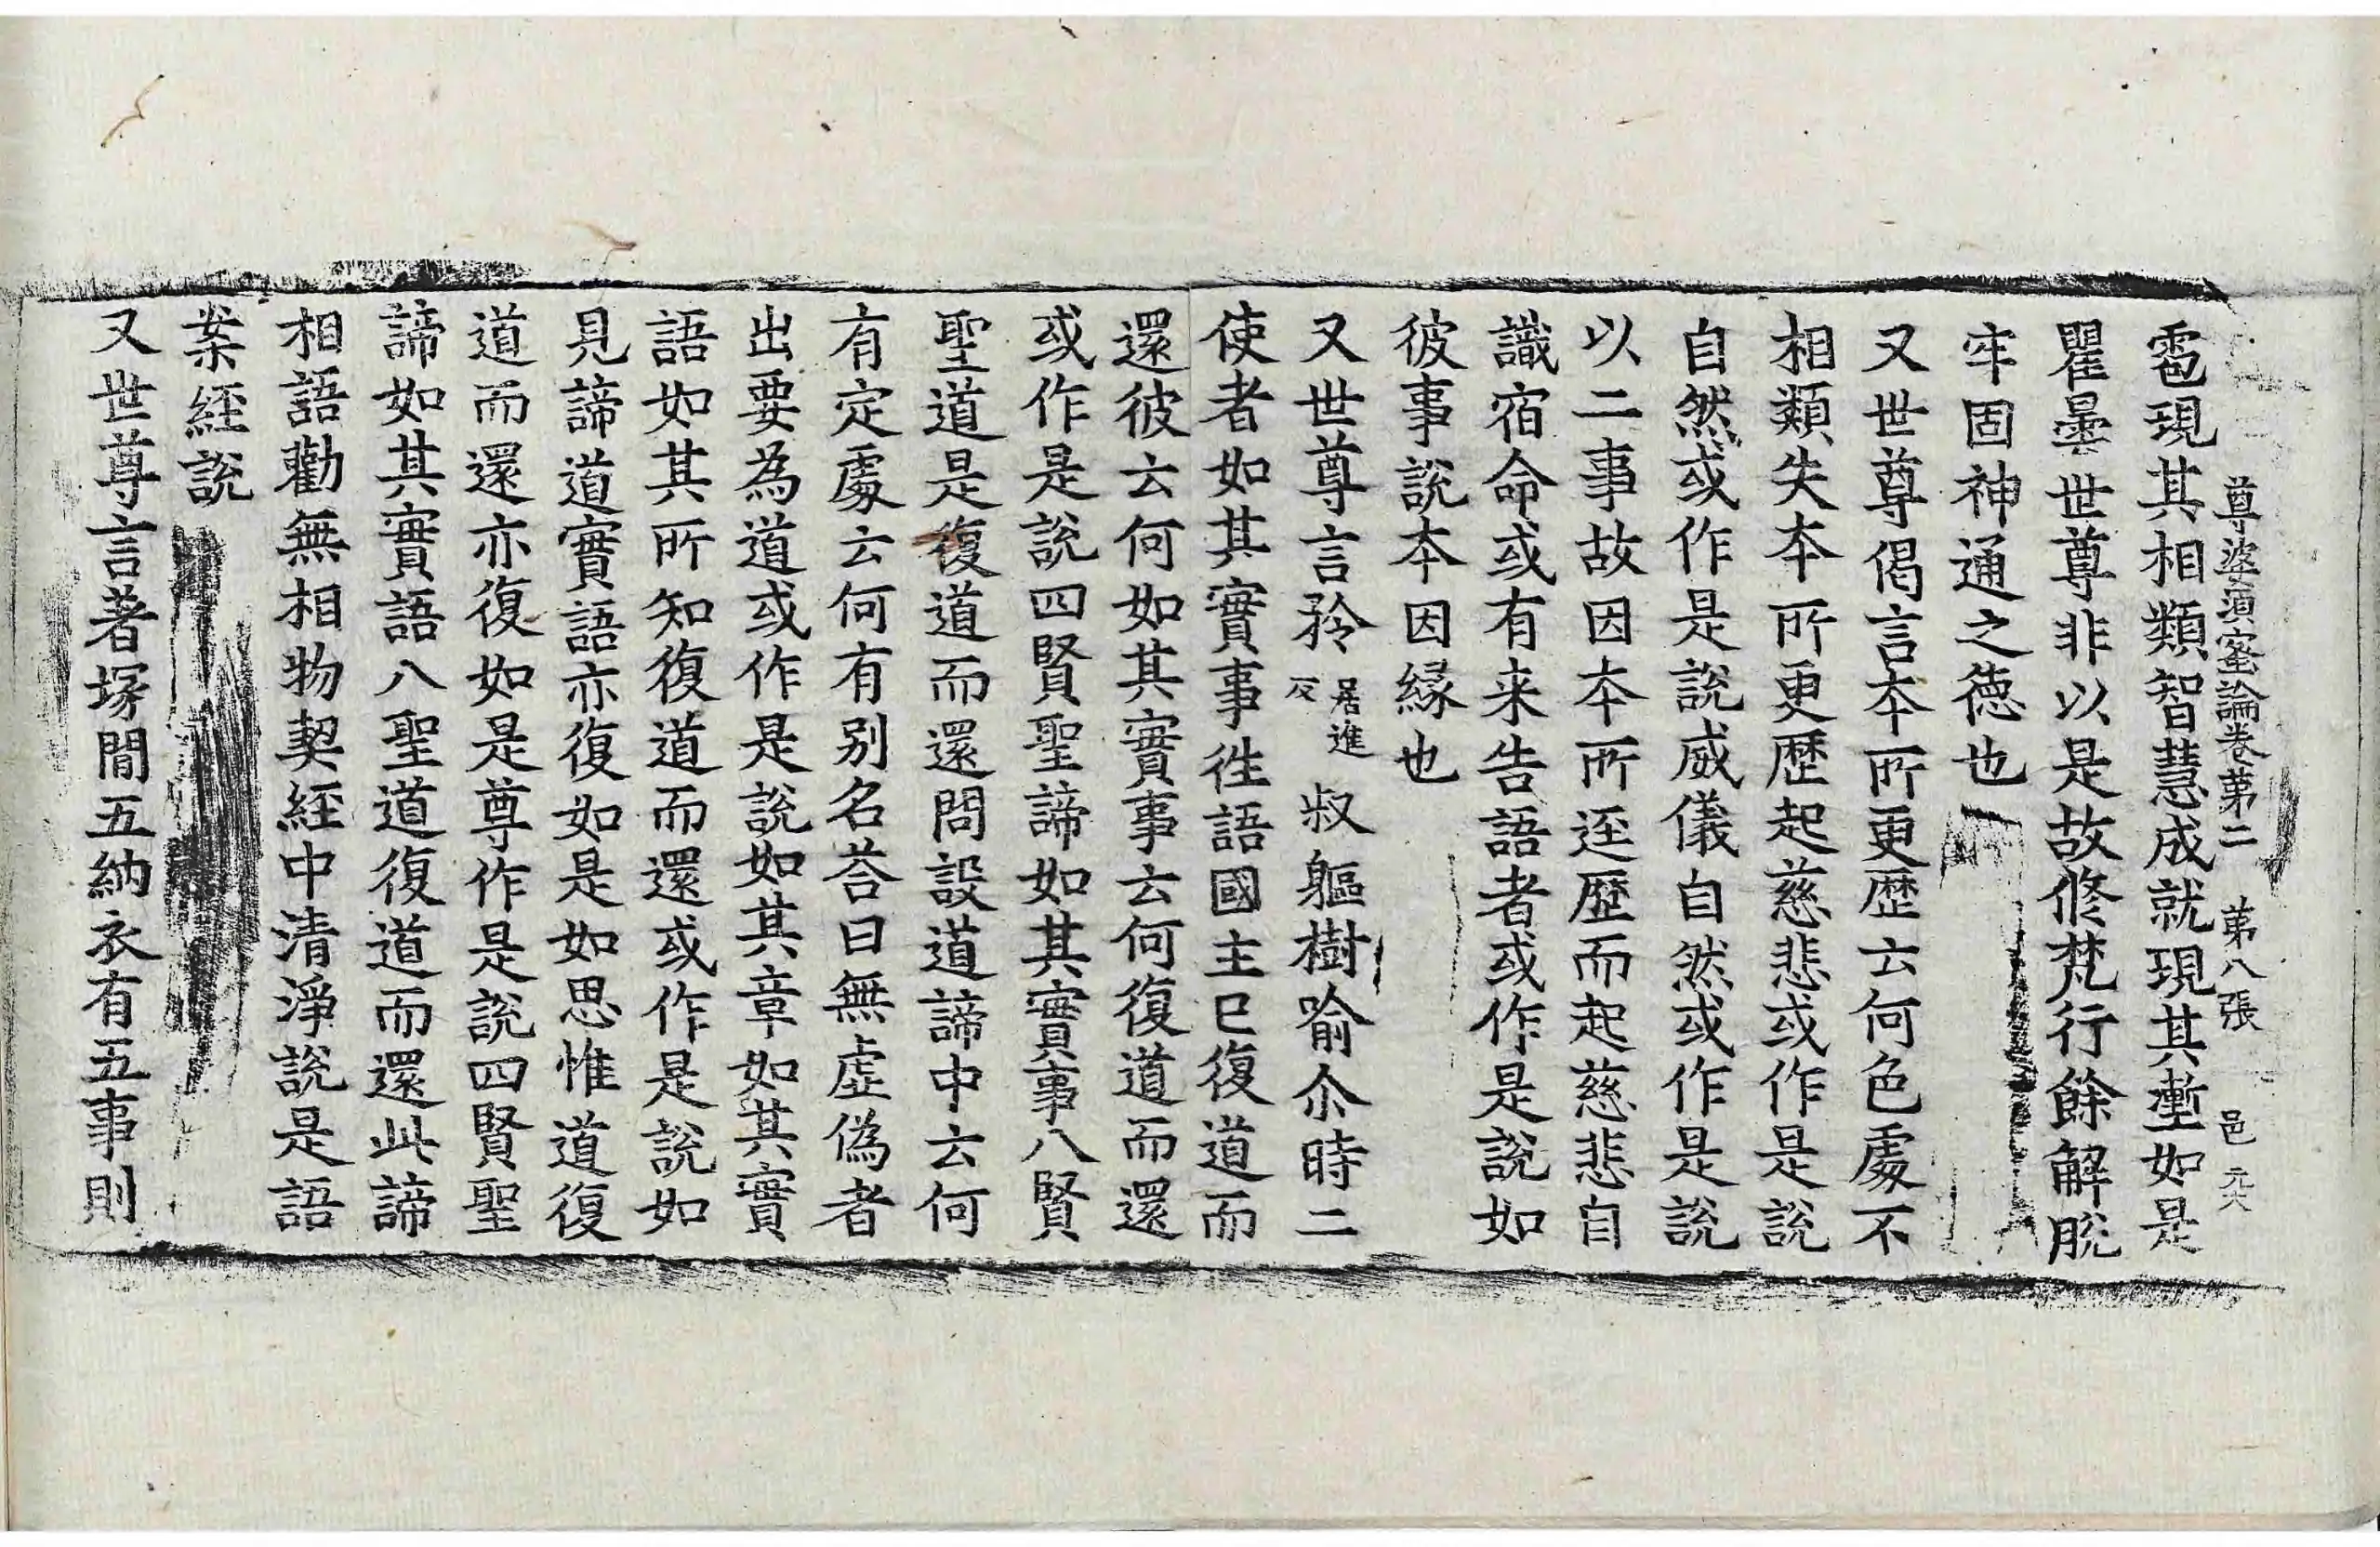 尊婆須蜜論卷第二　第八張　邑
雹現其相類智慧成就現其壍如是
瞿曇世尊非以是故修梵行餘解脫
牢固神通之德也
又世尊偈言本所更歷云何色處不
相類失本所更歷起慈悲或作是說
自然或作是說威儀自然或作是說
以二事故因本所逕歷而起慈悲自
識宿命或有来告語者或作是說如
彼事說本因緣也
又世尊言矜居進反叔軀樹喻尒時二
使者如其實事徃語國主已復道而
還彼云何如其實事云何復道而還
或作是說四賢聖諦如其實事八賢
聖道是復道而還問設道諦中云何
有定處云何有別名荅曰無虛偽者
出要為道或作是說如其章如其實
語如其所知復道而還或作是說如
見諦道實語亦復如是如思惟道復
道而還亦復如是尊作是說四賢聖
諦如其實語八聖道復道而還此諦
相語勸無相物契経中清淨說是語
案経說
又世尊言著塚間五納衣有五事則